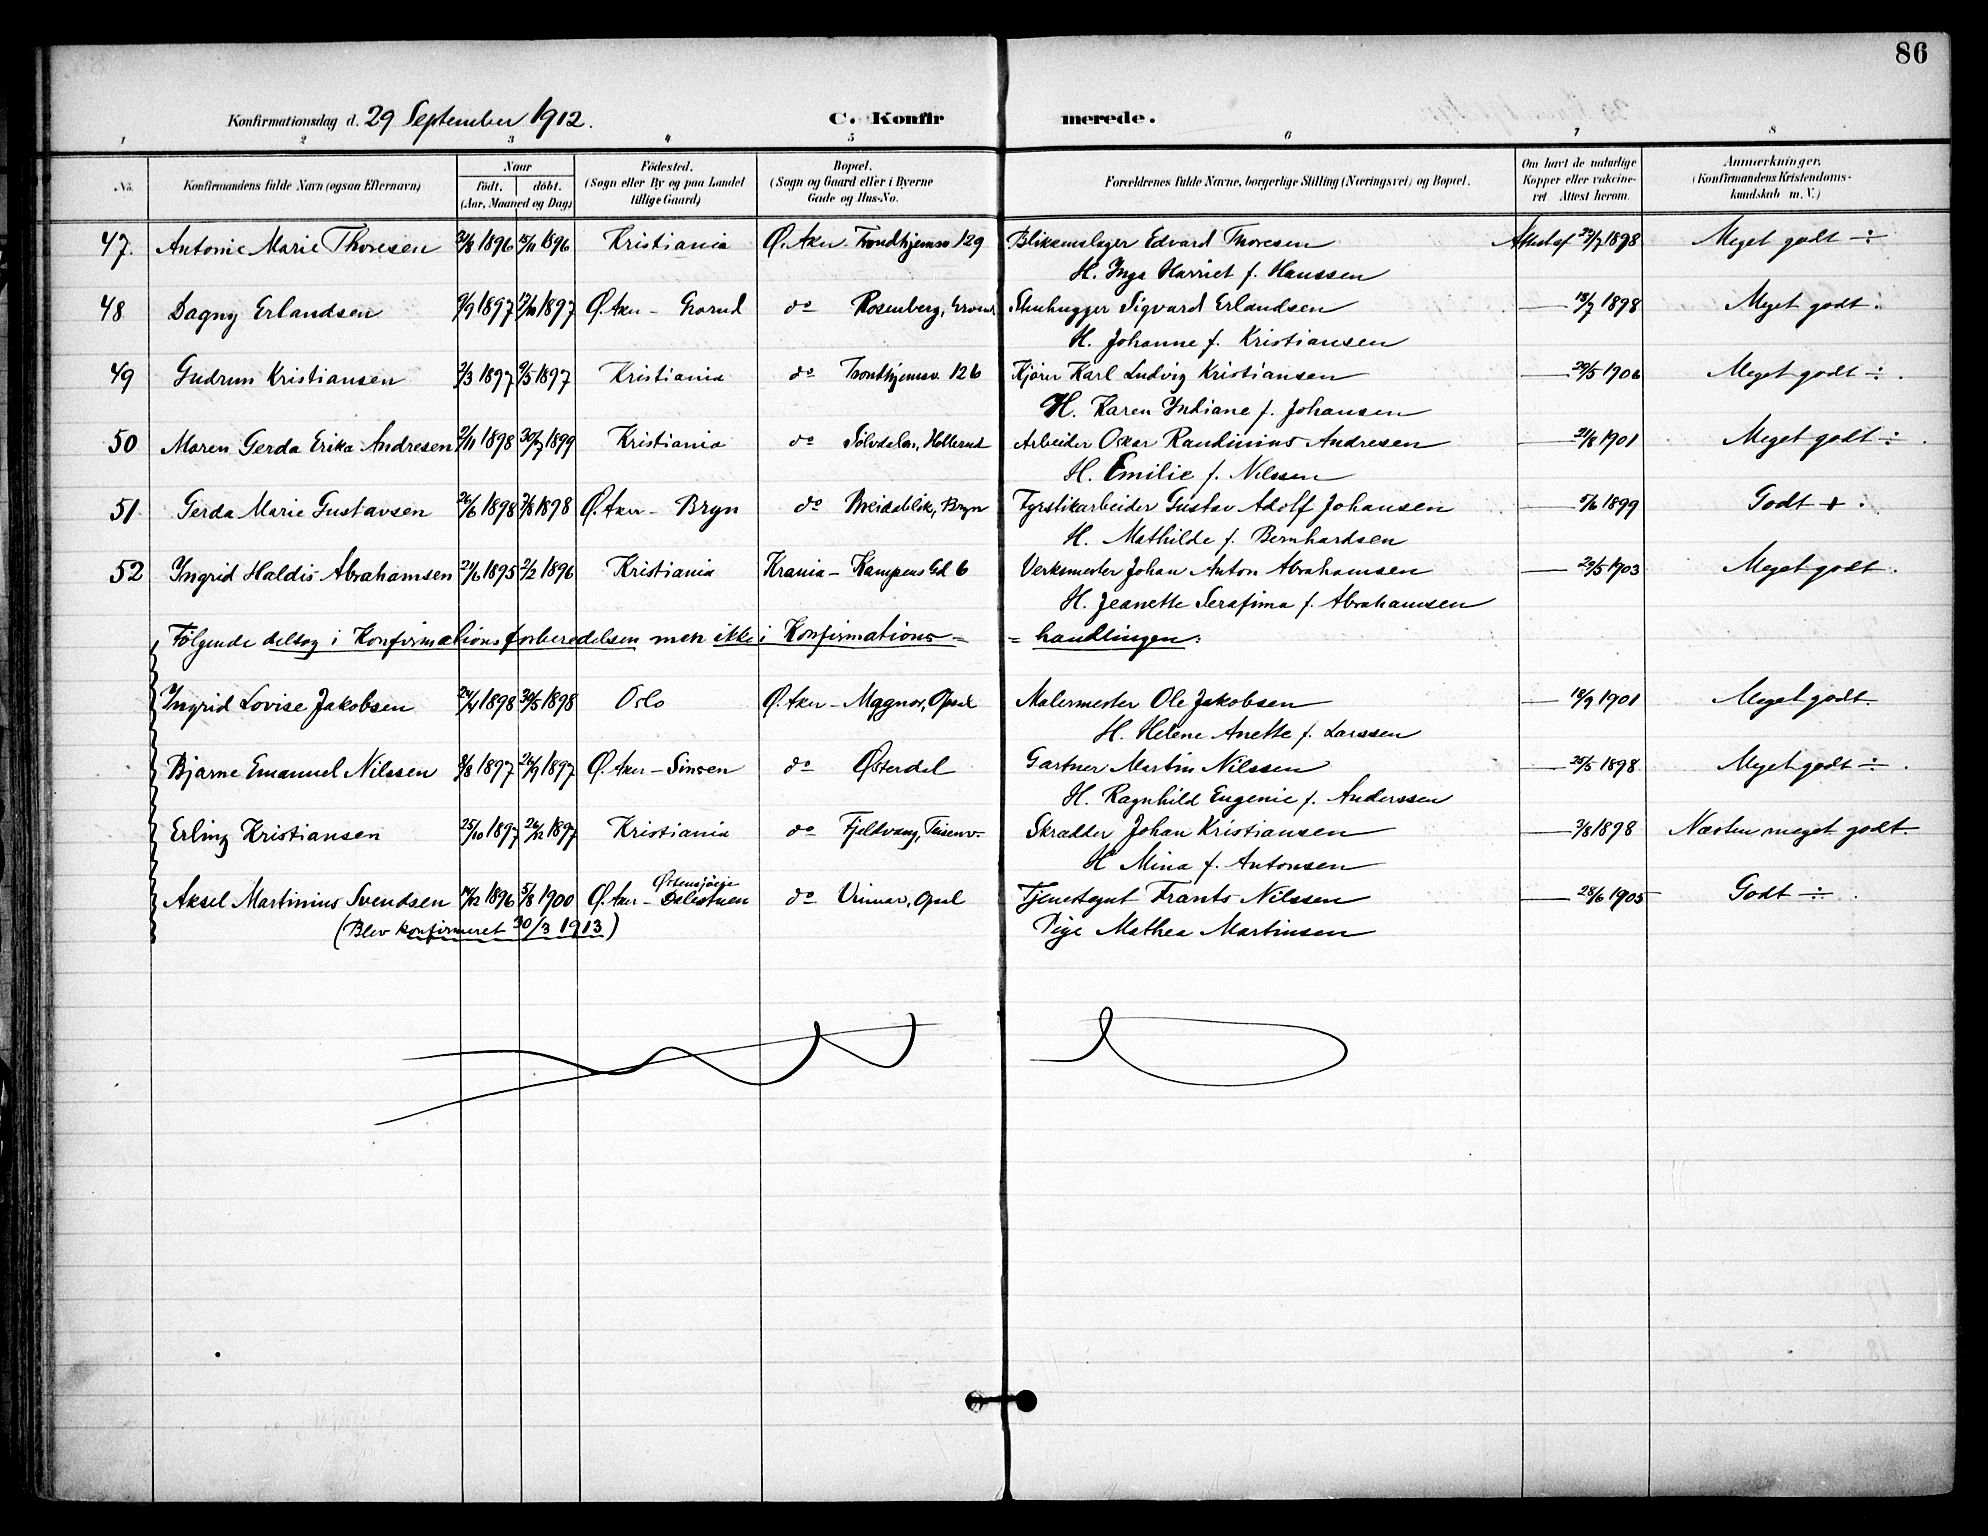 86
Konfirmationsdag d. 29 September 1912.
C. Konfirmerede.
1 2 3 4 5 6 7 8
No.
Konfirmandens fulde Navn (ogsaa Efternavn)
Naar
født. døbt.
(Aar, Maaned og Dag)
Fødested.
(Sogn eller By og paa Landet
tillige Gaard)
Bopæl.
(Sogn og Gaard eller i Byerne
Gade og Hus-No.
Forældrenes fulde Navne, borgerlige Stilling (Næringsvei) og Bopæl.
Om havt de naturlige
Kopper eller vakcine-
ret Attest herom.
Anmærkninger.
(Konfirmandens Kristendoms-
kundskab m. V.)
47. Antonie Marie Thoresen 1896 1896 Kristiania Ø. Aker Trondhjemsv 129 Blikkenslager Edvard Thoresen Attest af 1898 Meget godt ÷
H. Inga Harriet f. Hanssen
48 Dagny Erlandsen 1897 1897 Ø. Aker - Grorud do Rosenberg, Grorud Stenhugger Sigvard Erlandsen — 18/7 1898 Meget godt.
H. Johanne f. Kristiansen
49 Gudrun Kristiansen 1897 1897 Kristiania do Trondhjemsv. 126 Kjører Karl Ludvig Kristiansen — 29/5 1906 Meget godt ÷.
H. Karen Indiane f. Johansen
50 Maren Gerda Erika Andresen 1898 30/7 1899 Kristiania do Sølvdalen, Hellerud Arbeider Oskar Randinius Andresen — 21/8 1901 Meget godt ÷.
H. Emilie f. Nilssen
51 Gerda Marie Gustavsen 26/6 1898 1898 Ø. Aker - Bryn do Breidablik, Bryn Fyrstikarbeider Gustav Adolf Johansen — 1899 Godt +.
H. Mathilde f. Bernhardsen
52 Ingrid Haldis Abrahamsen 1895 2/2 1896 Kristiania Krania - Kampens Gd 6 Verksmester Johan Anton Abrahamsen — 1903 Meget godt.
H. Jeanette Serafima f. Abrahamsen
Følgende deltog i Konfirmationsforberedelsen men ikke i Konfirmations=
=handlingen:
Ingrid Lovise Jakobsen 1898 30/5 1898 Oslo Ø. Aker - Magnor, Opsal Malermester Ole Jakobsen — 18/9 1901 Meget godt
H. Helene Anette f. Larssen
Bjarne Emanuel Nilssen 1897 26/9 1897 Ø. Aker - Sinsen do Østerdal Gartner Martin Nilssen — 25/5 1898 Meget godt ÷.
H. Ragnhild Eugenie f. Anderssen
Erling Kristiansen 25/10 1897 26/12 1897 Kristiania do Fjeldvang, Teisenv. Skrædder Johan Kristiansen — 1898 Næsten meget godt.
H. Mina f. Antonsen
Østensjøveje
Aksel Martinius Svendsen 1896 5/8 1900 Ø. Aker - Dalestuen do Opsal Tjenestegut Frants Nilssen — 28/6 1905 Godt ÷.
(Blev konfirmeret 30/3 1913) Pige Mathea Martinsen